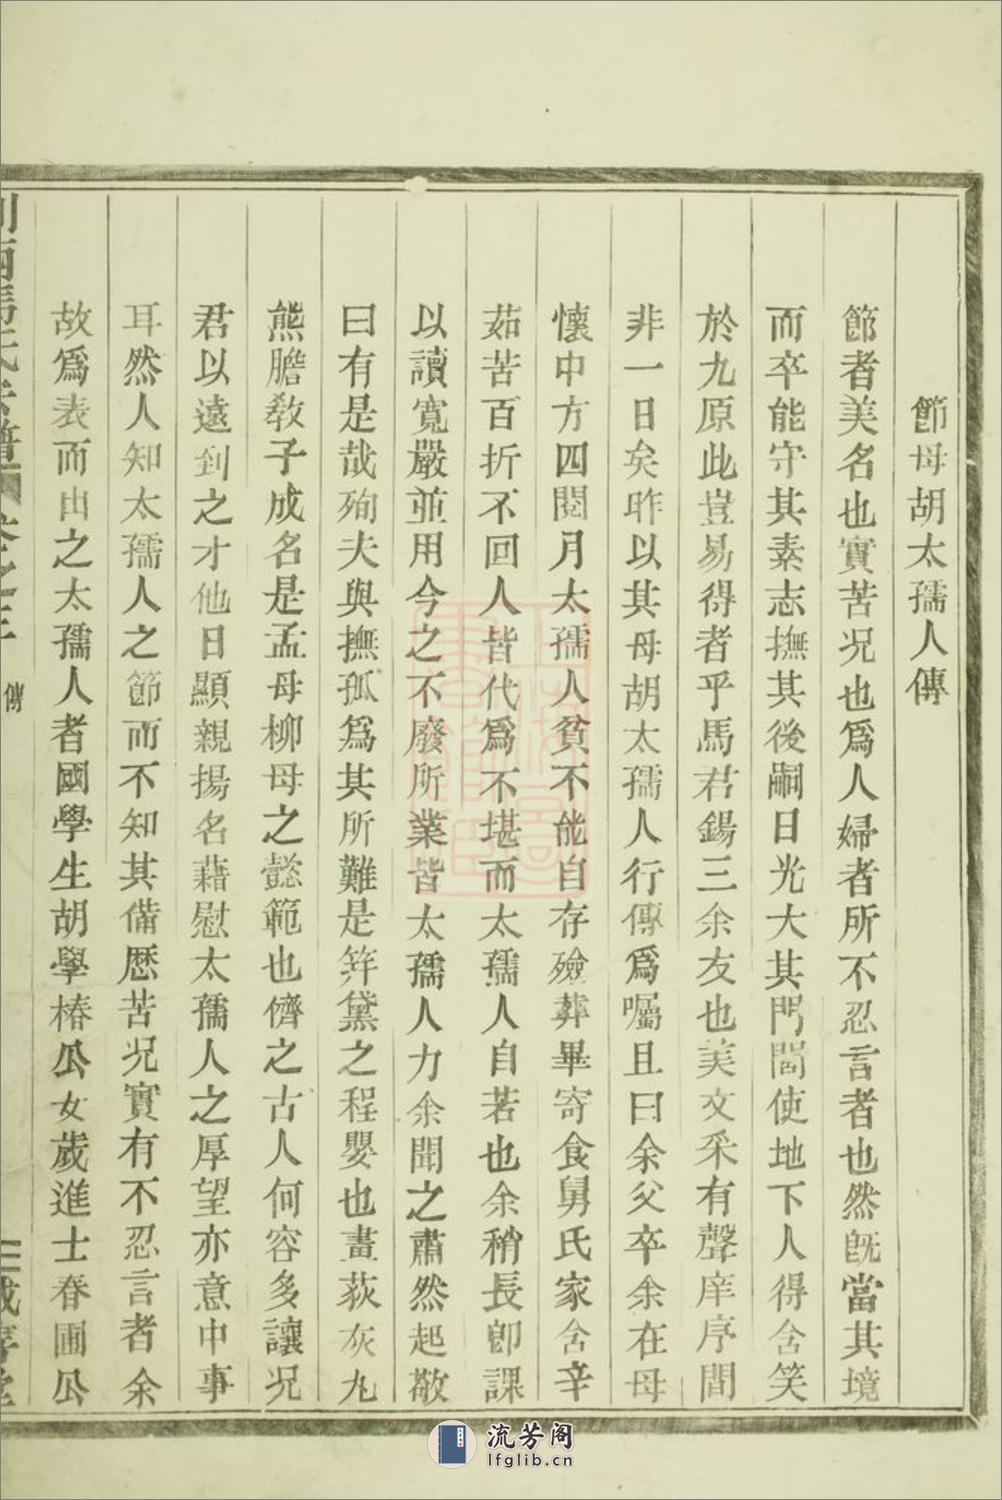 節母胡太孺人傳
節者美名也實苦况也爲人婦者所不忍言者也然旣當其境
而卒能守其素志撫其後嗣日光大其門閭使地下人得含笑
於九原此豈易得者乎馬君錫三余友也美文采有聲庠序間
非一日矣昨以其母胡太孺人行傳爲囑且曰余父卒余在母
懷中方四閱月太孺人貧不能自存殮葬畢寄食舅氏家含辛
茹苦百折不回人皆代爲不堪而太孺人自若也余稍長卽課
以讀寬嚴並用今之不廢所業皆太孺人力余聞之肅然起敬
曰有是哉殉夫與撫孤爲其所難是笄黛之程嬰也畫荻灰丸
熊膽教子成名是孟母柳母之懿範也儕之古人何容多讓况
君以遠到之才他日顯親揚名藉慰太孺人之厚望亦意中事
耳然人知太孺人之節而不知其備歷苦况實有不忍言者余
故爲表而出之太孺人者國學生胡學椿公女歲進士春圃公
馬氏宗譜 卷之 傳
流芳阁
lfglib.cn